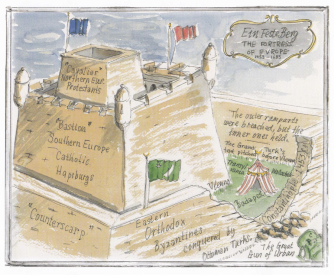 Ein Feste Berg
THE FORTRESS
OF EUROPE
1453 - 1683
"Cavalier"
Northern Eur.
Protestants
"Bastion"
Southern Europe
Catholic
Hapsburgs
"Counterscarp"
Eastern
Orthodox
Byzantines
conquered by
Ottoman Turks.
The outer ramparts
were breached, but the
inner ones held.
The Grand Turk's
tent pitched before Vienna
Vienna
Budapest
Constantinople
The Great
Gun of Urban